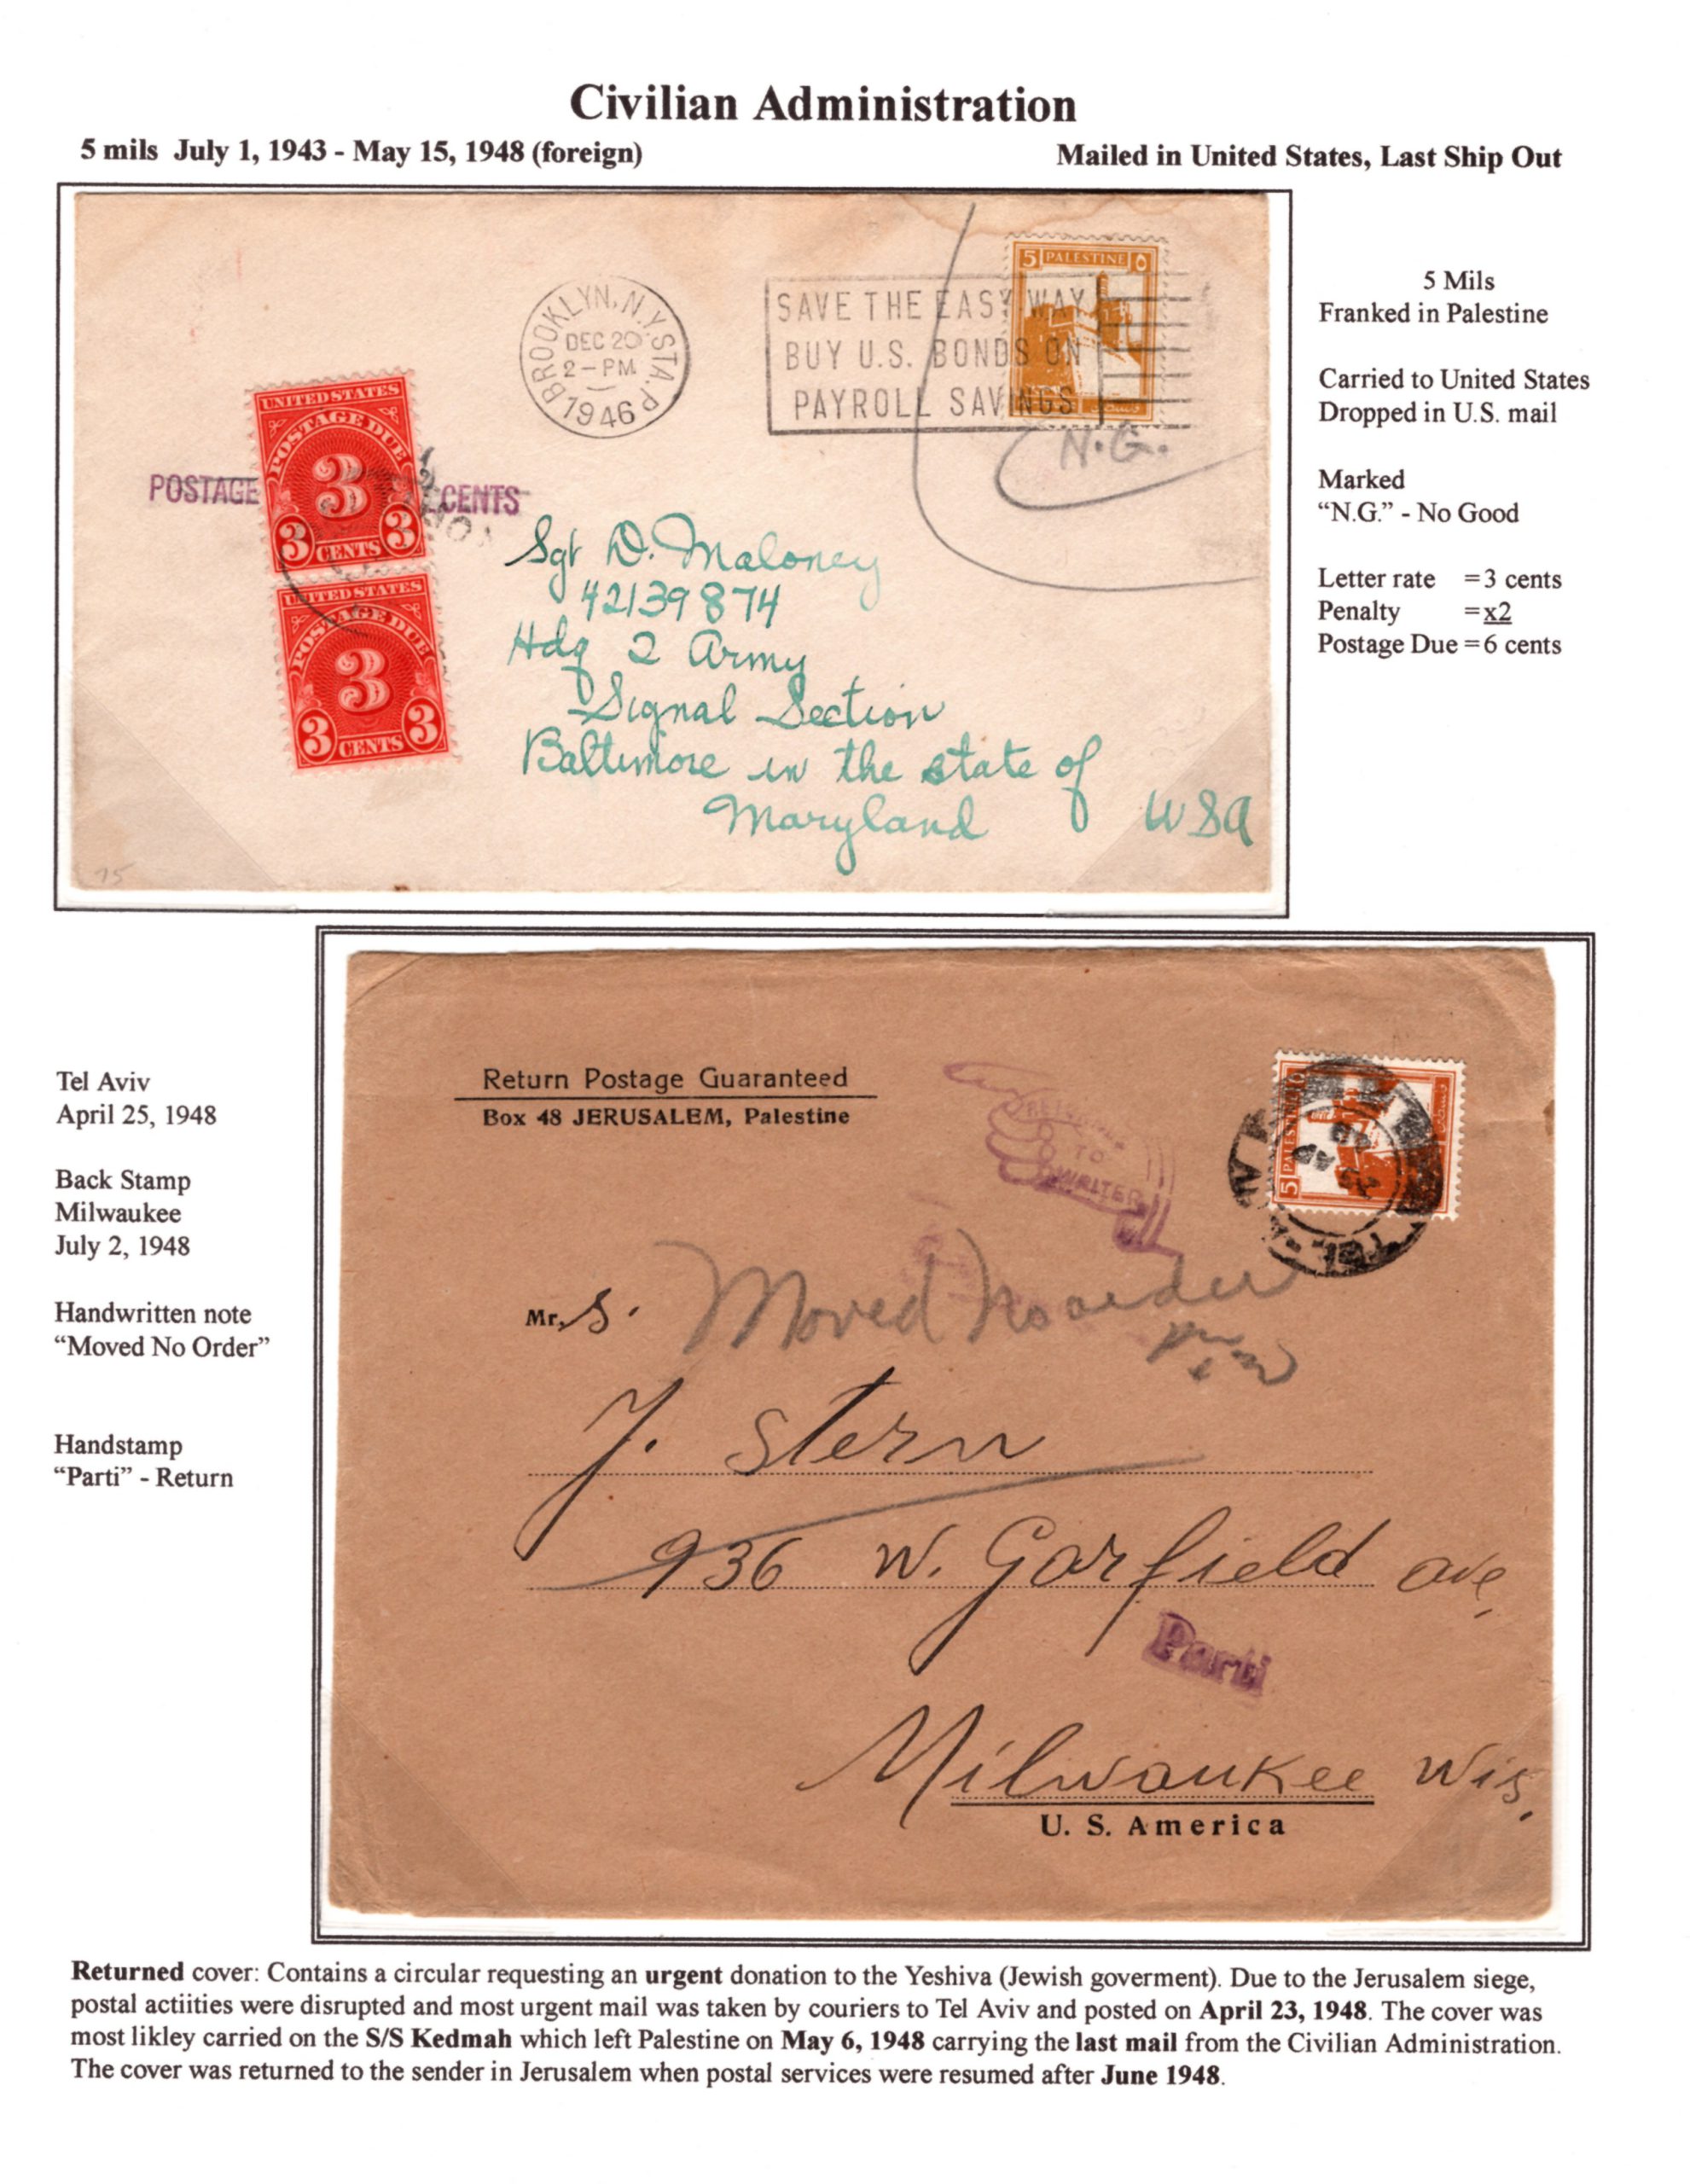 Civilian Administration
5 mils July 1, 1943 - May 15, 1948 (foreign)
Mailed in United States, Last Ship Out
BROOKLYN, N.Y. STA. P
DEC 20
2 - PM
1946
SAVE THE EASY WAY
BUY U.S. BONDS ON
PAYROLL SAVINGS
5 PALESTINE ٥
N.G.
UNITED STATES
POSTAGE DUE
3
3 CENTS 3
POSTAGE
CENTS
UNITED STATES
POSTAGE DUE
3
3 CENTS 3
Sgt D. Maloney
42139874
Hdq 2 Army
Signal Section
Baltimore in the state of
Maryland USA
15
5 Mils
Franked in Palestine
Carried to United States
Dropped in U.S. mail
Marked
“N.G.” - No Good
Letter rate =3 cents
Penalty =x2
Postage Due =6 cents
Tel Aviv
April 25, 1948
Back Stamp
Milwaukee
July 2, 1948
Handwritten note
“Moved No Order”
Handstamp
“Parti” - Return
Return Postage Guaranteed
Box 48 JERUSALEM, Palestine
TO
WRITER
5 PALESTINE ٥
TEL
Mr. S.
Moved No order
J. Stern
936 W. Garfield ave,
Parti
Milwaukee Wis.
U. S. America
Returned cover: Contains a circular requesting an urgent donation to the Yeshiva (Jewish goverment). Due to the Jerusalem siege,
postal actiities were disrupted and most urgent mail was taken by couriers to Tel Aviv and posted on April 23, 1948. The cover was
most likley carried on the S/S Kedmah which left Palestine on May 6, 1948 carrying the last mail from the Civilian Administration.
The cover was returned to the sender in Jerusalem when postal services were resumed after June 1948.